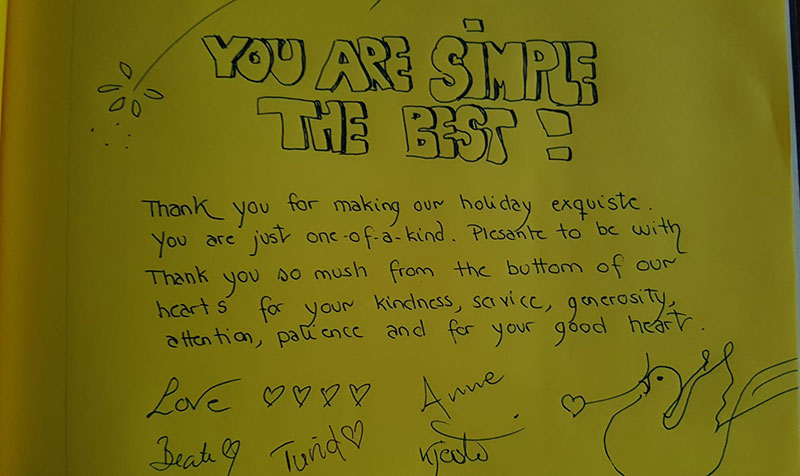 YOU ARE SIMPLE
THE BEST!
Thank you for making our holiday exquiste.
You are just one-of-a-kind. Plesante to be with
Thank you so mush from the bottom of our
hearts for your kindness, service, generosity,
attention, patience and for your good heart.
Love ♡♡♡♡ Anne
Beate ♡ Turid ♡